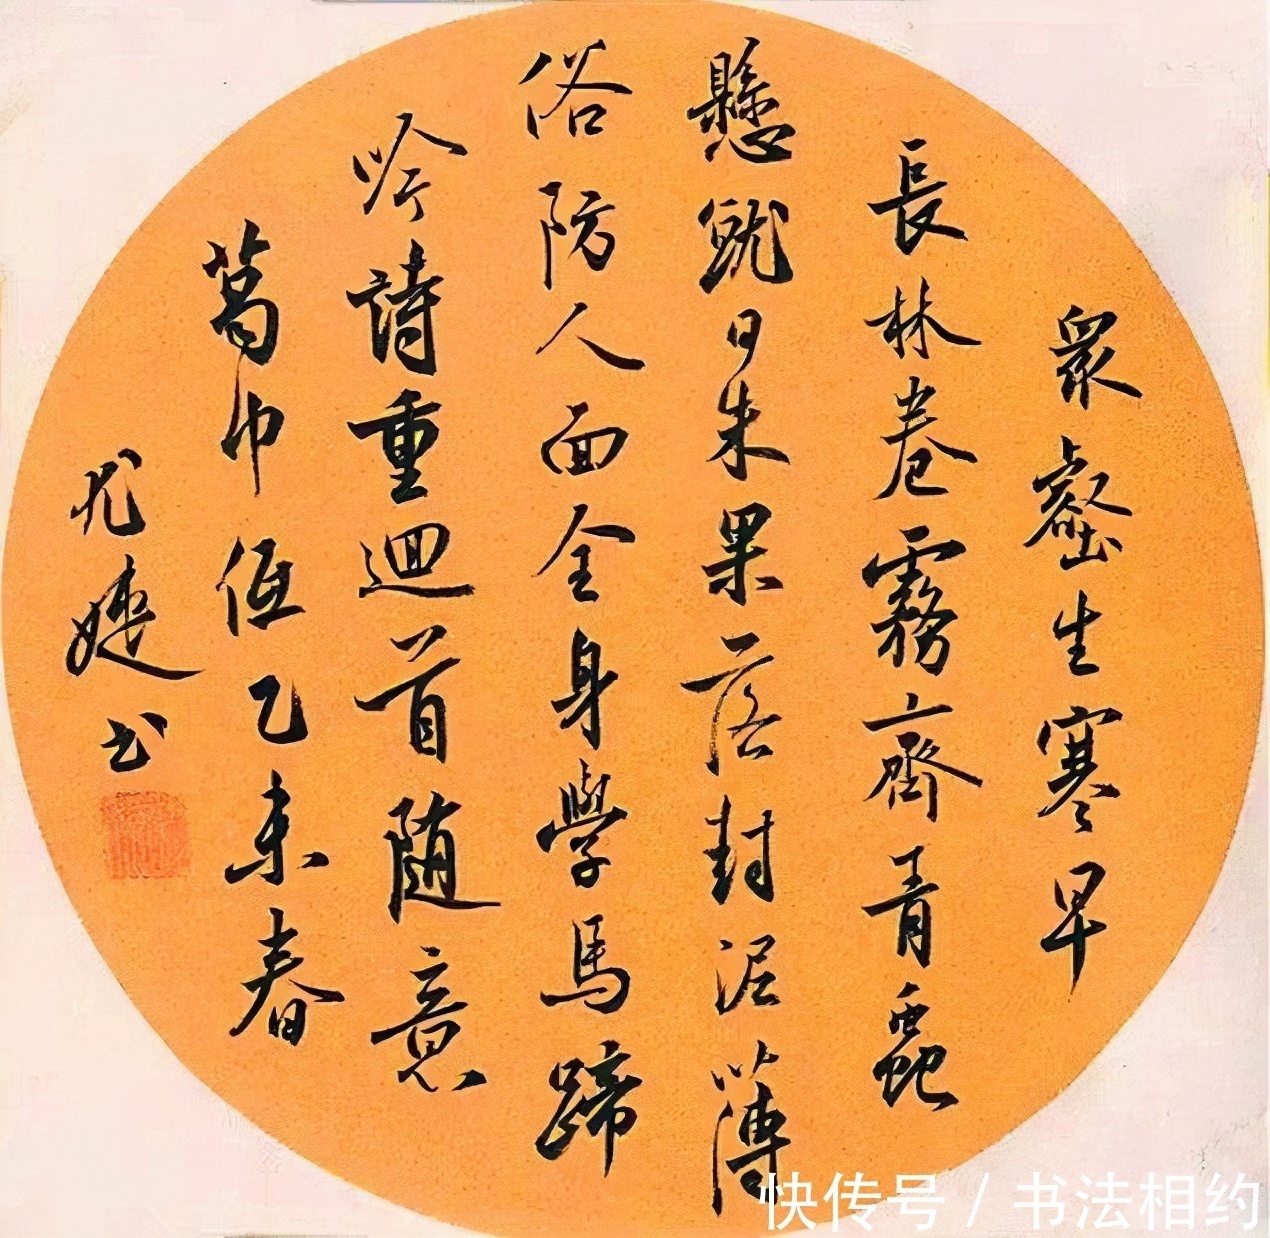 眾壑生寒早
長林卷霧齊青蟲
懸就日朱果落封泥薄
俗防人面全身學馬蹄
吟詩重迴首随意
葛巾低乙未春
尤婕书
快传号 / 书法相约